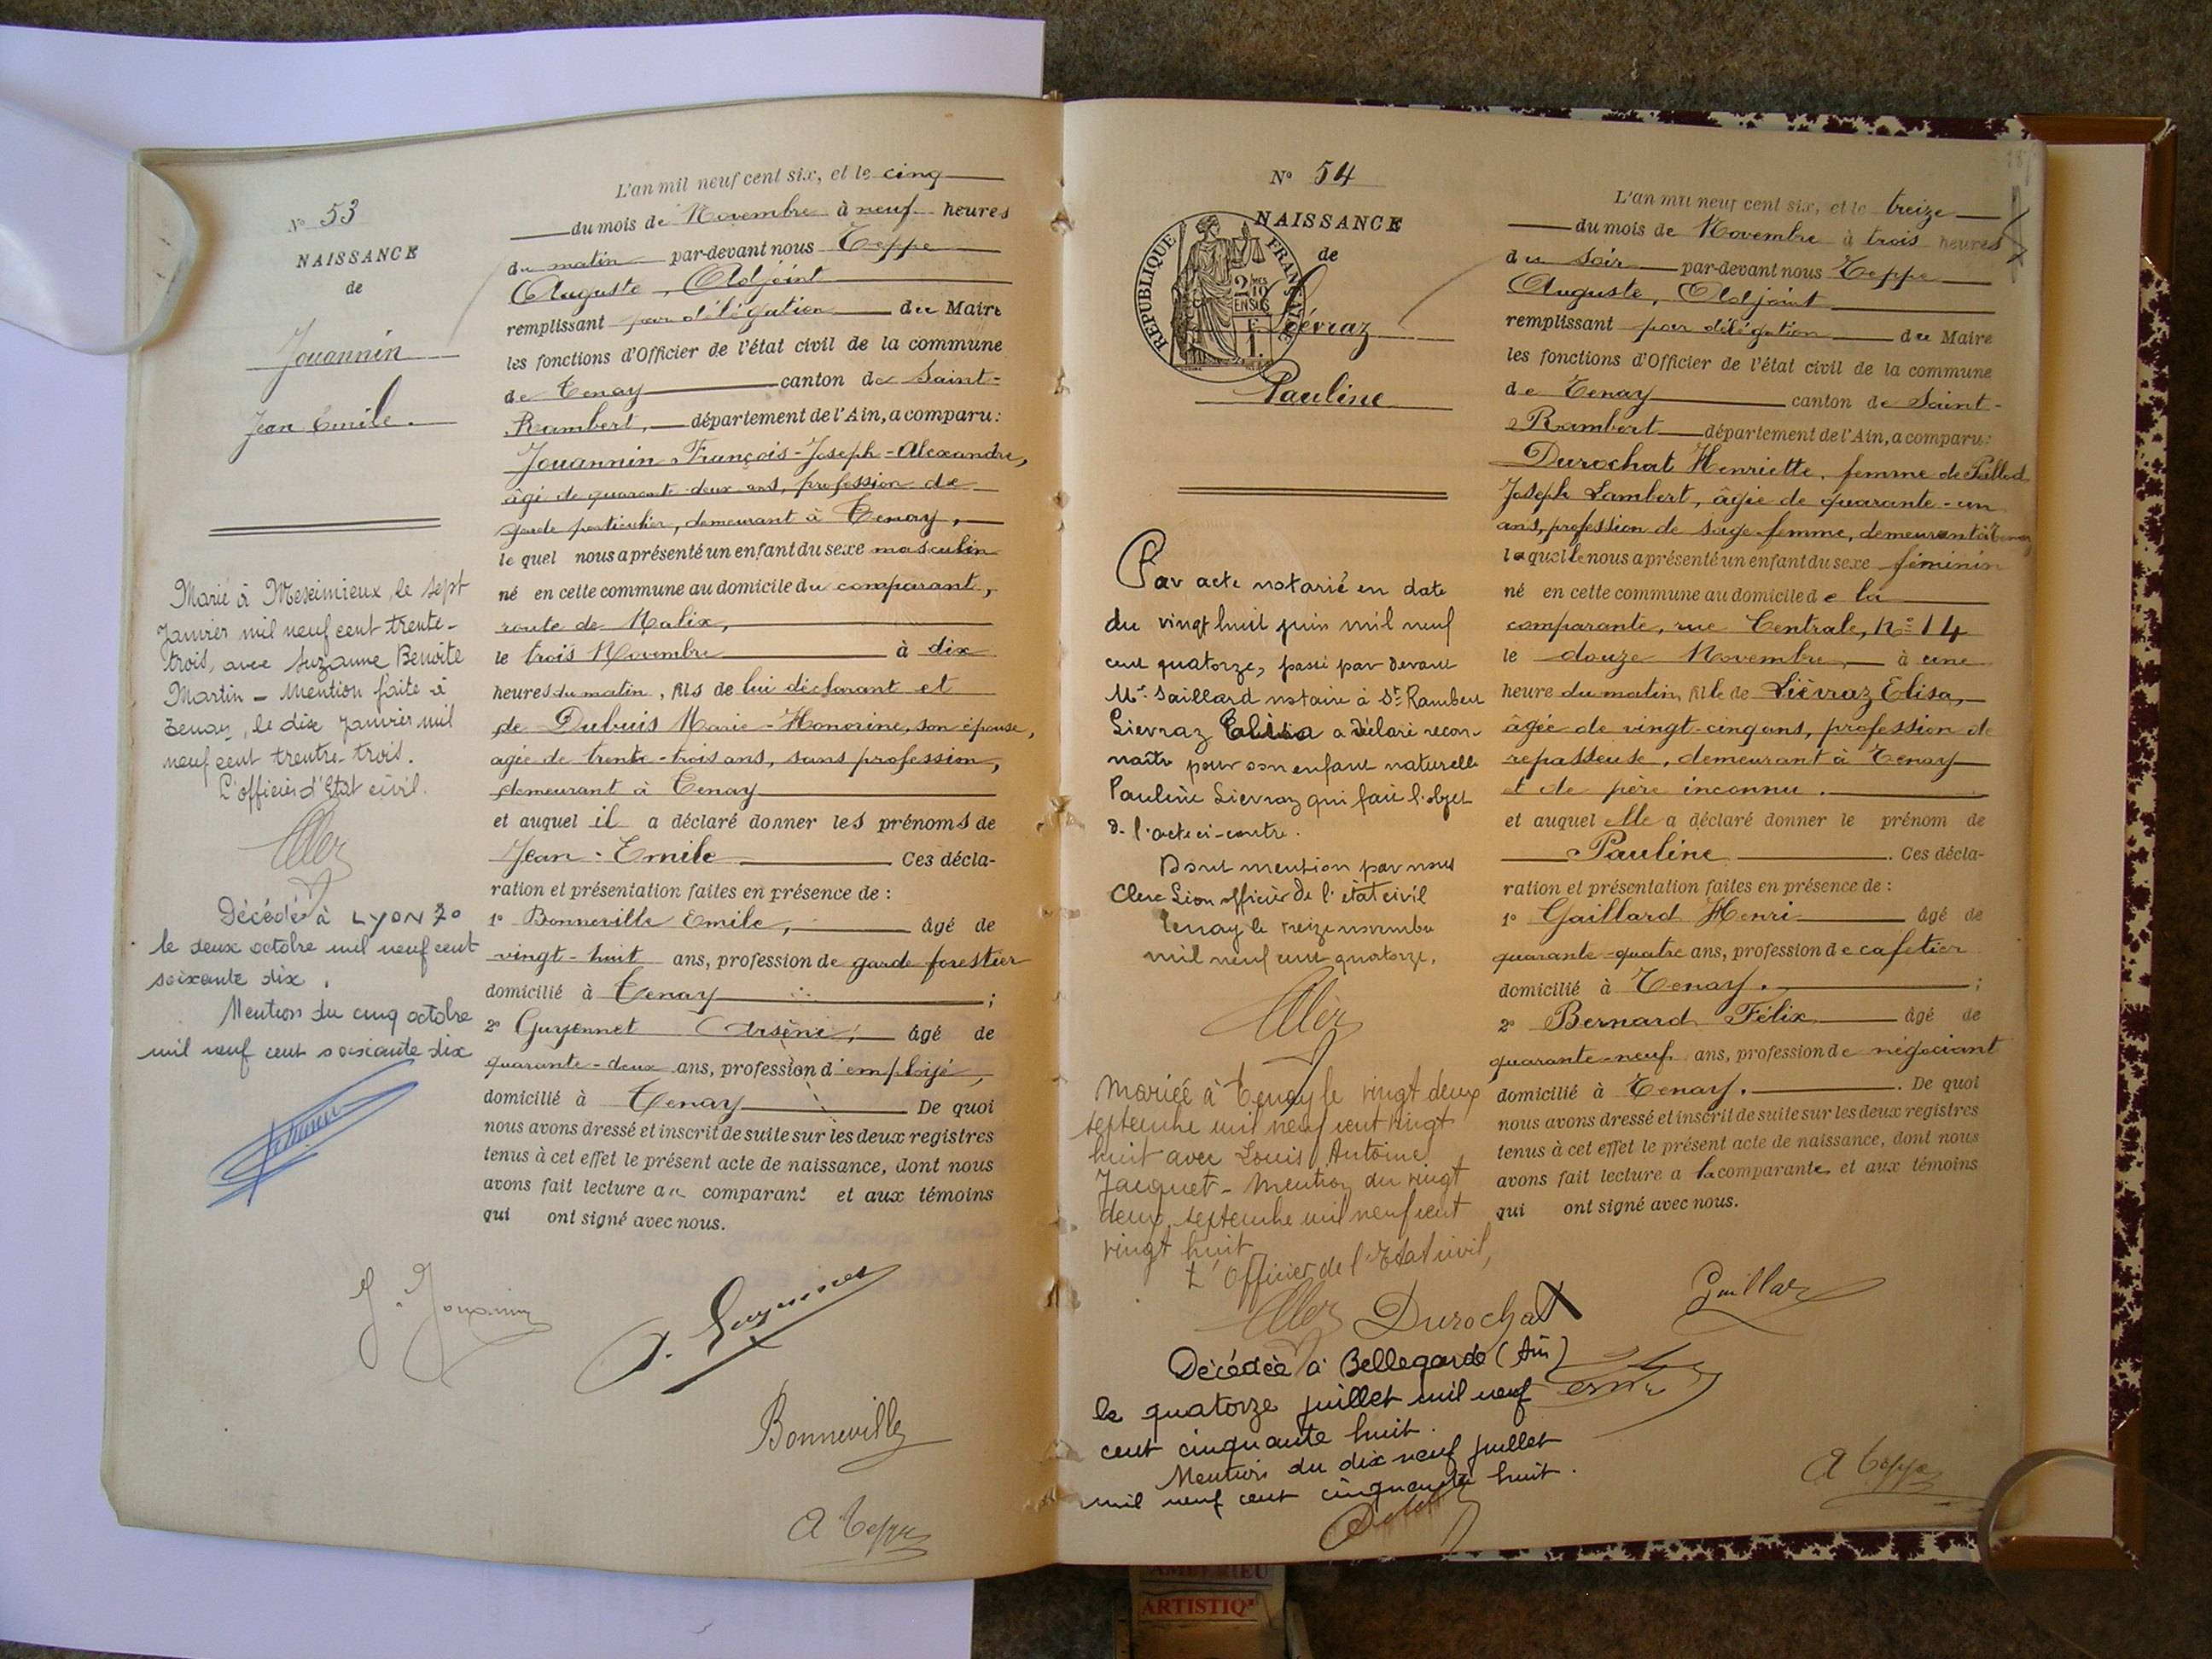 N° 53
NAISSANCE
de
Jouannin
Jean Emile.
Marié à Meximieux, le sept
Janvier mil neuf cent trente-
trois, avec Suzanne Benoite
Martin - Mention faite à
Tenay, le dix Janvier mil
neuf cent trente-trois.
L'officier d'Etat civil.
Décédé à LYON 7°
le deux octobre mil neuf cent
soixante dix.
Mention du cinq octobre
mil neuf cent soixante dix
L'an mil neuf cent six, et le cinq
du mois de Novembre à neuf heures
du matin par-devant nous Teppe
Auguste, Adjoint
remplissant par délégation du Maire
les fonctions d'Officier de l'état civil de la commune
de Tenay canton de Saint-
Rambert, département de l'Ain, a comparu:
Jouannin François-Joseph-Alexandre,
âgé de quarante-deux ans, profession de
garde particulier, demeurant à Tenay,
le quel nous a présenté un enfant du sexe masculin
né en cette commune au domicile du comparant,
route de Malix,
le trois Novembre à dix
heures du matin, fils de lui déclarant et
de Dubuis Marie-Honorine, son épouse,
agée de trente-trois ans, sans profession,
demeurant à Tenay
et auquel il a déclaré donner les prénoms de
Jean-Emile Ces décla-
ration et présentation faites en présence de :
1° Bonneville Emile, âgé de
vingt-huit ans, profession de garde forestier
domicilié à Tenay ;
2° Guyennet Arsène, âgé de
quarante-deux ans, profession d'employé,
domicilié à Tenay De quoi
nous avons dressé et inscrit de suite sur les deux registres
tenus à cet effet le présent acte de naissance, dont nous
avons fait lecture au comparant et aux témoins
qui ont signé avec nous.
J. Jouannin
Bonneville
A Teppe
N° 54
NAISSANCE
de
RÉPUBLIQUE FRANÇAISE
2/10
EN SUS
Lévraz
Pauline
Par acte notarié en date
du vingt huit juin mil neuf
cent quatorze, passé par devant
Me Saillard notaire à St Rambert
Lievraz Elisa a déclaré recon-
naître pour son enfant naturelle
Pauline Lievraz qui fait l'objet
de l'acte ci-contre.
Dont mention par nous
Clerc Léon officier de l'état civil
Tenay le treize novembre
mil neuf cent quatorze.
Mariée à Tenay le vingt deux
septembre mil neuf cent vingt
huit avec Louis Antoine
Jacquet - Mention du vingt
deux septembre mil neuf cent
vingt huit
L'Officier de l'Etat civil,
Décédée à Bellegarde (Ain)
le quatorze juillet mil neuf
cent cinquante huit.
Mention du dix neuf juillet
mil neuf cent cinquante huit.
L'an mil neuf cent six, et le treize
du mois de Novembre à trois heures
du soir par-devant nous Teppe
Auguste, Adjoint
remplissant par délégation du Maire
les fonctions d'Officier de l'état civil de la commune
de Tenay canton de Saint-
Rambert département de l'Ain, a comparu:
Durochat Henriette, femme de Pillod
Joseph Lambert, âgée de quarante-un
ans, profession de sage-femme, demeurant à Tenay
laquelle nous a présenté un enfant du sexe féminin
né en cette commune au domicile de la
comparante, rue Centrale, N° 14
le douze Novembre à une
heure du matin, fille de Lièvraz Elisa,
âgée de vingt-cinq ans, profession de
repasseuse, demeurant à Tenay
et de père inconnu.
et auquel elle a déclaré donner le prénom de
Pauline. Ces décla-
ration et présentation faites en présence de :
1° Gaillard Henri âgé de
quarante-quatre ans, profession de cafetier
domicilié à Tenay. ;
2° Bernard Félix âgé de
quarante-neuf ans, profession de négociant
domicilié à Tenay. De quoi
nous avons dressé et inscrit de suite sur les deux registres
tenus à cet effet le présent acte de naissance, dont nous
avons fait lecture a la comparante et aux témoins
qui ont signé avec nous.
Durochat
A Teppe
AMBERIEU
ARTISTIQ